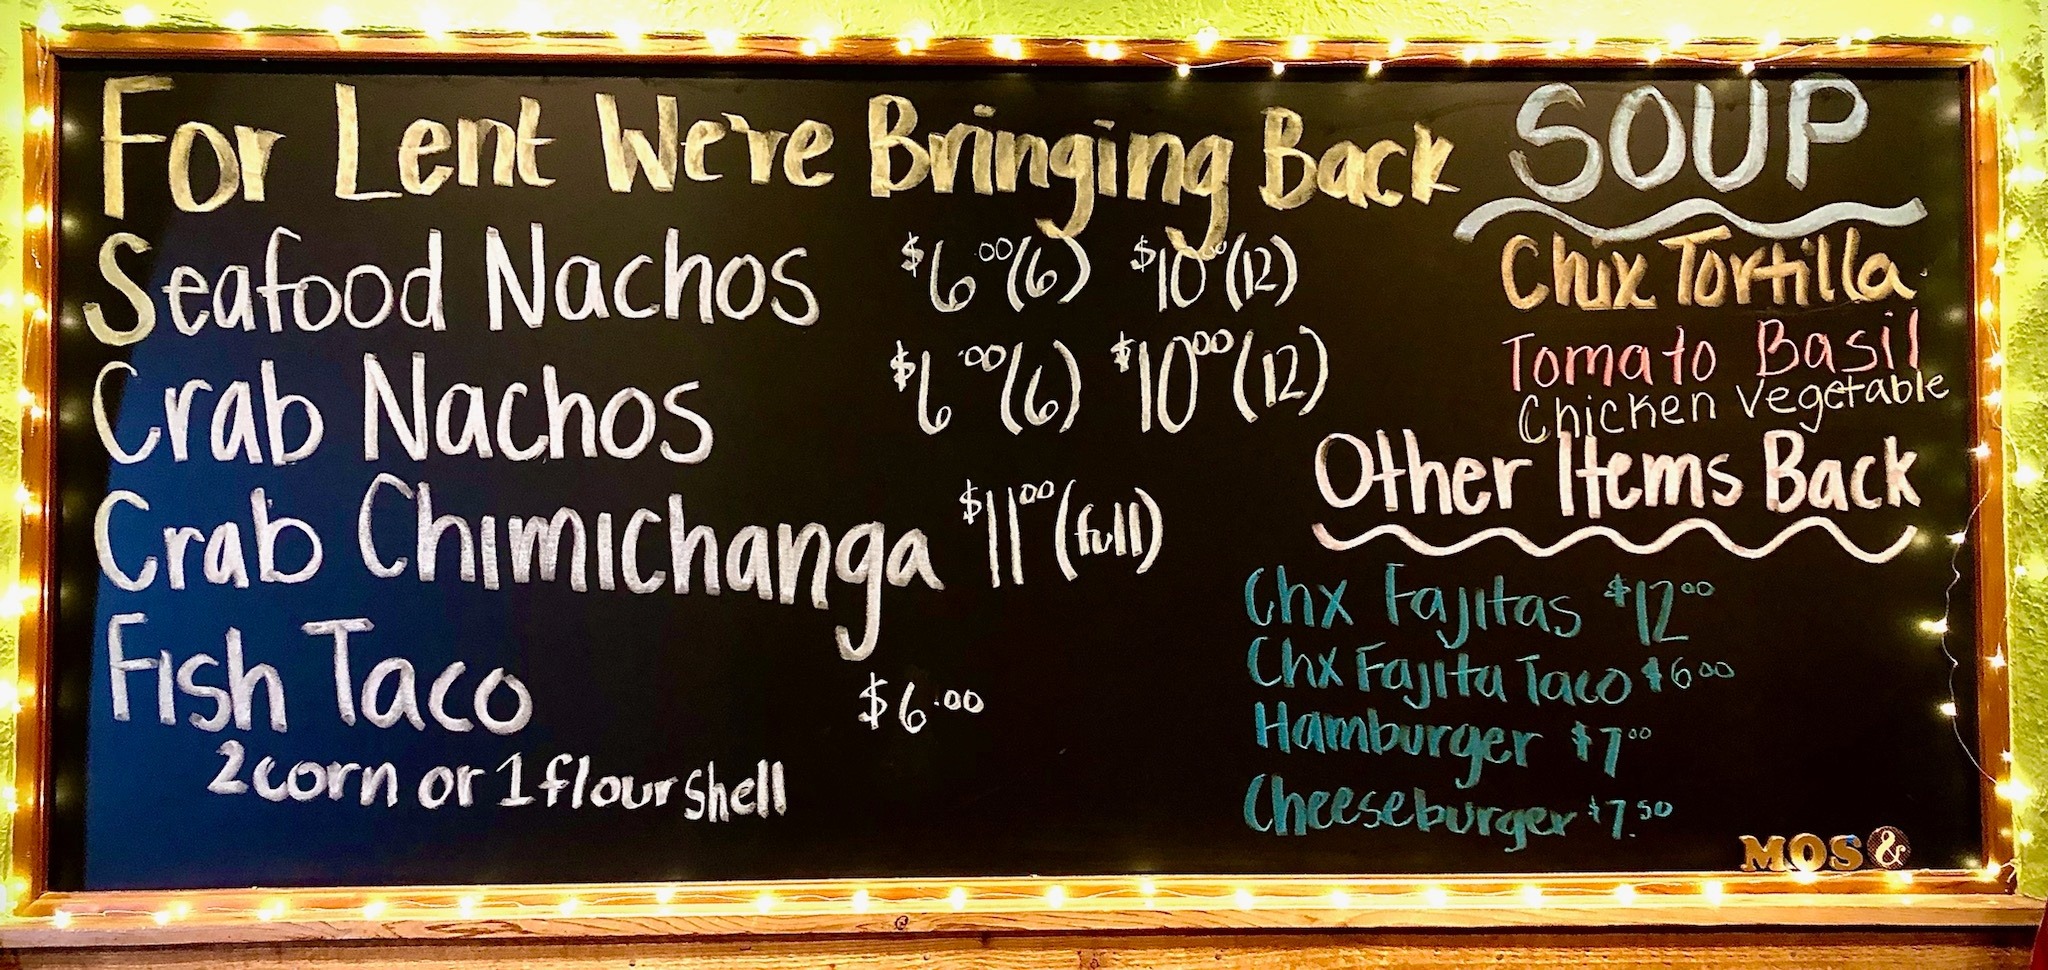 For Lent We're Bringing Back
Seafood Nachos $6.00 (6) $10.00 (12)
Crab Nachos $6.00 (6) $10.00 (12)
Crab Chimichanga $11.00 (full)
Fish Taco $6.00
2 corn or 1 flour shell
SOUP
Chix Tortilla
Tomato Basil
Chicken Vegetable
Other Items Back
Chx Fajitas $12.00
Chx Fajita Taco $6.00
Hamburger $7.00
Cheeseburger $7.50
MOS &